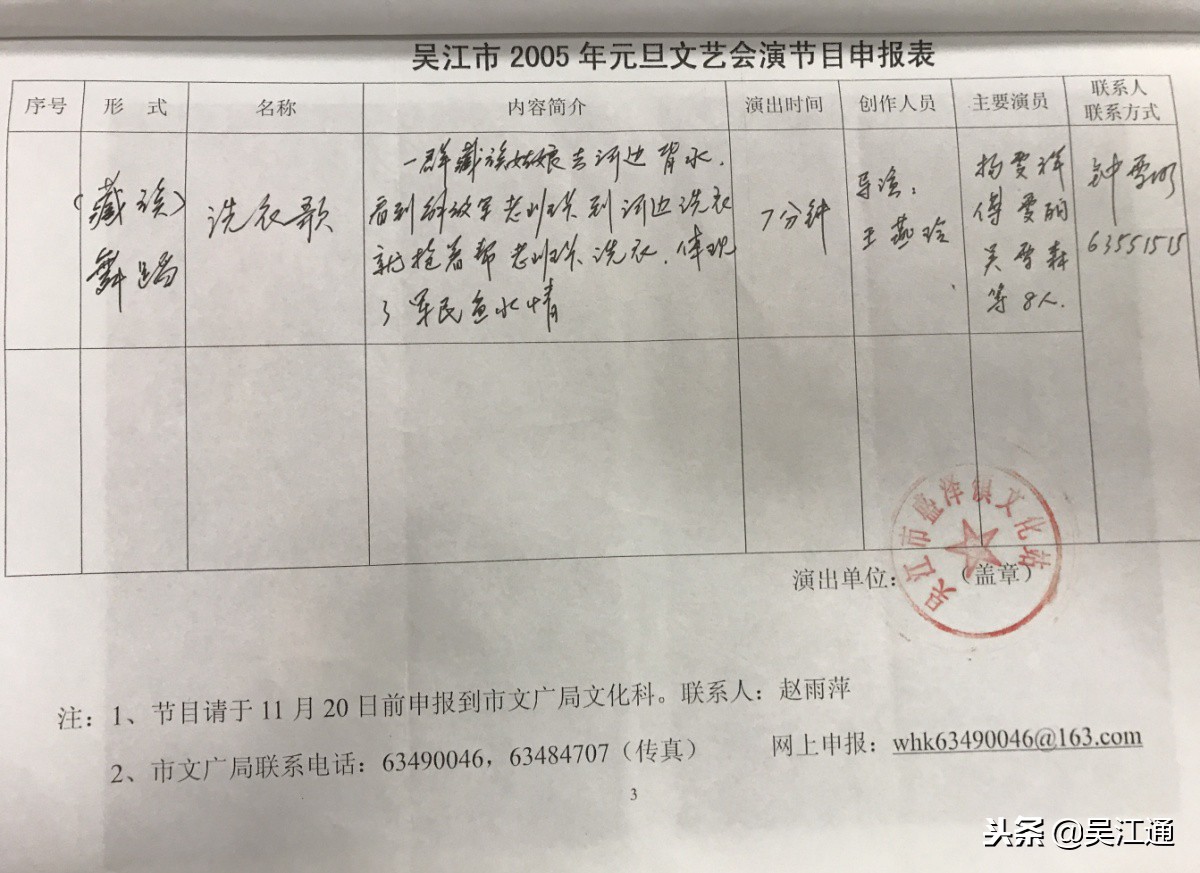 吴江市 2005 年元旦文艺会演节目申报表
序号 形 式 名称 内容简介 演出时间 创作人员 主要演员 联系人
联系方式
(藏族)
舞蹈
洗衣歌
一群藏族姑娘去河边背水.
看到解放军老班长到河边洗衣
就抢着帮老班长洗衣.体现
了军民鱼水情
7分钟
导演:
王燕玲
杨雯祥
傅雯丽
吴雪森
等8人.
钟雪明
63551515
吴江市盛泽镇文化站
演出单位: (盖章)
注: 1、节目请于 11 月 20 日前申报到市文广局文化科。联系人: 赵雨萍
2、市文广局联系电话: 63490046, 63484707 (传真) 网上申报: whk63490046@163.com
3
头条 @吴江通